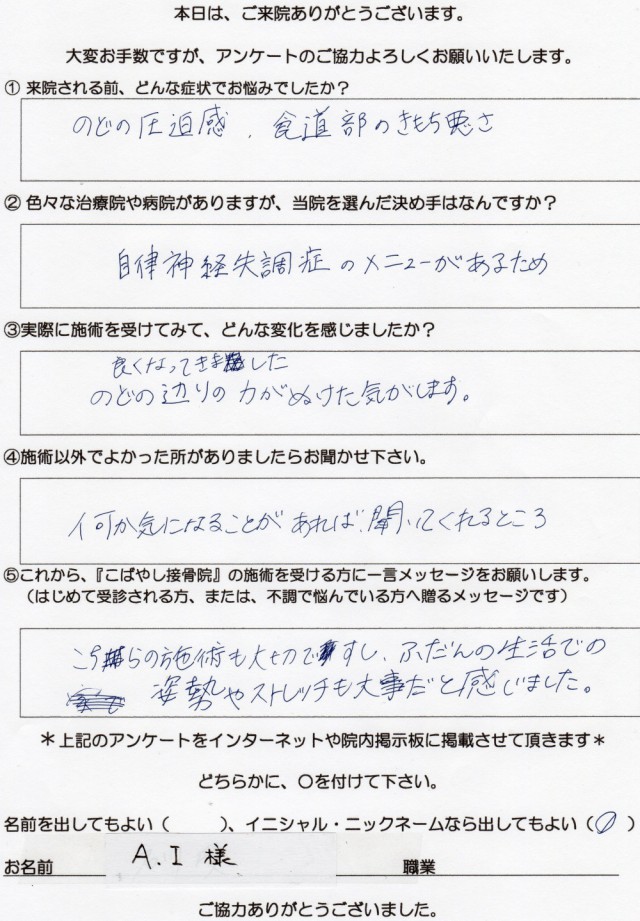 本日は、ご来院ありがとうございます。
大変お手数ですが、アンケートのご協力よろしくお願いいたします。
① 来院される前、どんな症状でお悩みでしたか？
のどの圧迫感、食道部のきもち悪さ
② 色々な治療院や病院がありますが、当院を選んだ決め手はなんですか？
自律神経失調症のメニューがあるため
③実際に施術を受けてみて、どんな変化を感じましたか？
良くなってきました
のどの辺りの力がぬけた気がします。
④施術以外でよかった所がありましたらお聞かせ下さい。
何か気になることがあれば、聞いてくれるところ
⑤これから、『こばやし接骨院』の施術を受ける方に一言メッセージをお願いします。
（はじめて受診される方、または、不調で悩んでいる方へ贈るメッセージです）
こちらの施術も大切ですし、ふだんの生活での
姿勢やストレッチも大事だと感じました。
＊上記のアンケートをインターネットや院内掲示板に掲載させて頂きます＊
どちらかに、〇を付けて下さい。
名前を出してもよい（　　）、イニシャル・ニックネームなら出してもよい（〇）
お名前 A.I 様 職業
ご協力ありがとうございました。